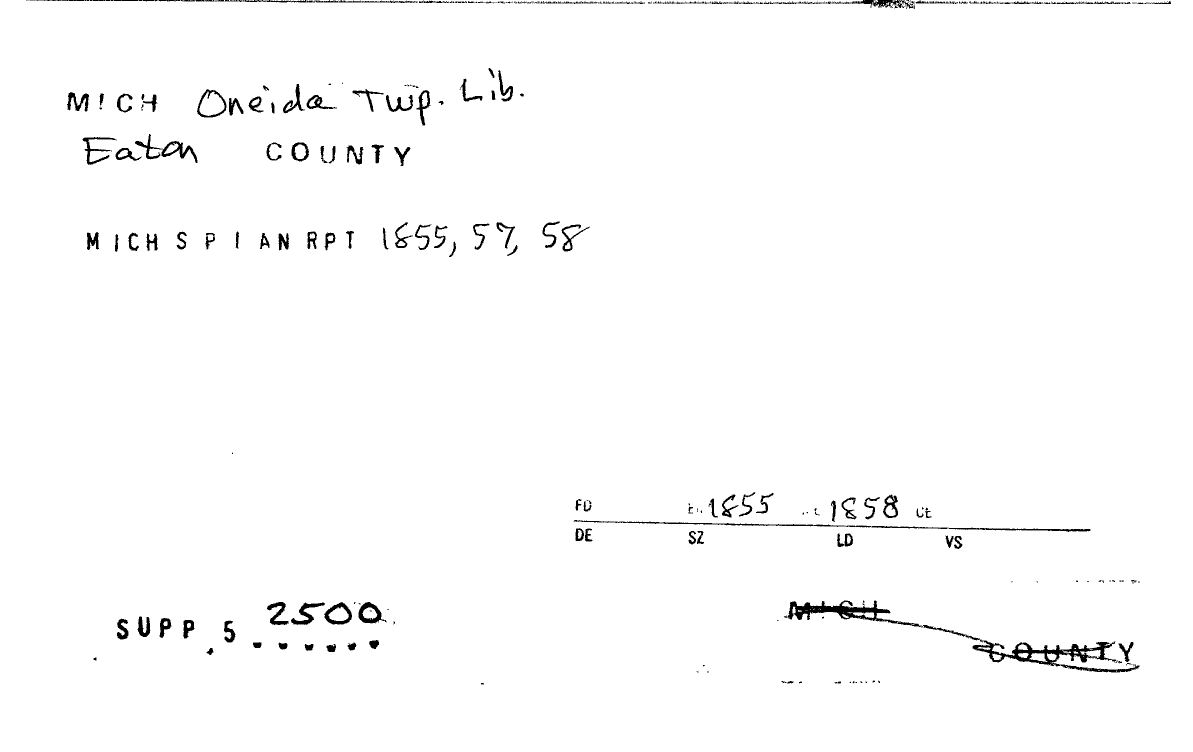 MICH Oneida Twp. Lib.
Eaton COUNTY
MICH S P I AN RPT 1855, 57, 58
FD 1855 1858 CE
DE SZ LD VS
SUPP.5 2500
MICH
COUNTY